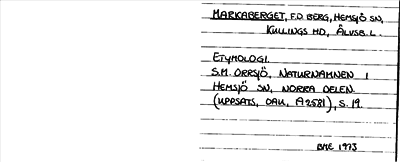 MARKABERGET, F.D. BERG, HEMSJÖ SN,
KULLINGS HD, ÄLVSB. L.
ETYMOLOGI.
S.M. ORRSJÖ, NATURNAMNEN I
HEMSJÖ SN, NORRA DELEN.
(UPPSATS, DAU, A2581), S. 19.
BME 1973